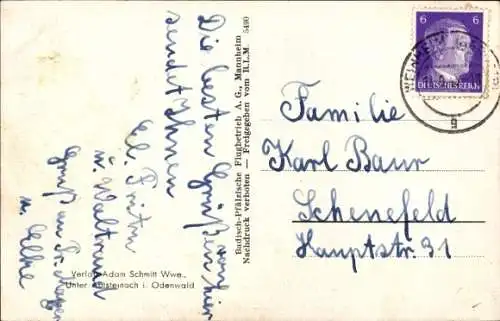 Die besten Grüße von hier
sendet Ihnen
u. Waltraud
Gruß an
u. Elke
Verlag Adam Schmitt Wwe.,
Unter Abtsteinach i. Odenwald
Badisch-Pfälzische Flugbetrieb A.G., Mannheim
Nachdruck verboten — Freigegeben vom R.L.M. 5490
6 6
DEUTSCHES REICH
WEINHEIM
g
Familie
Karl Baur
Schenefeld
Hauptstr. 31